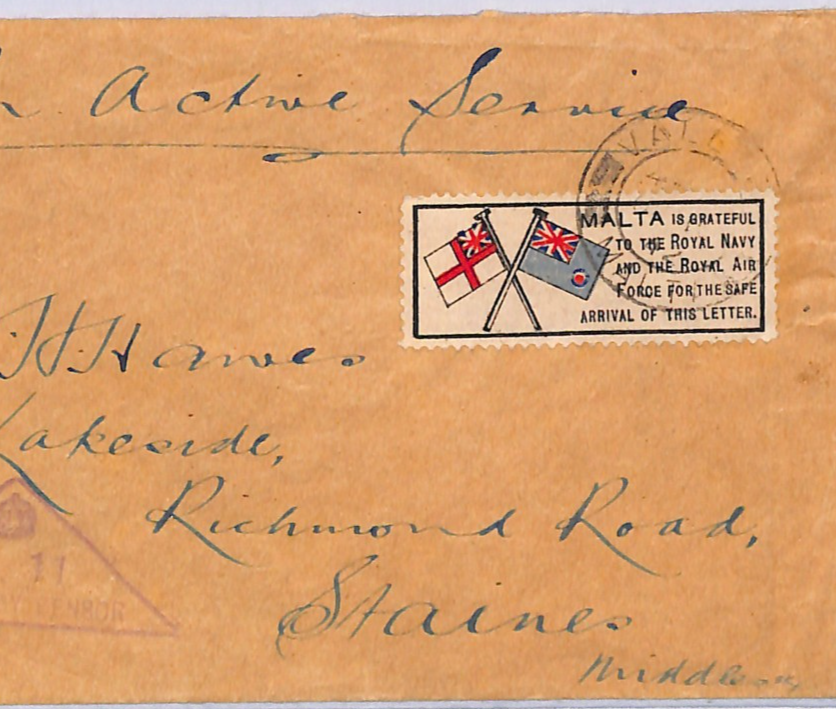 Active Service
VALL
MALTA IS GRATEFUL
TO THE ROYAL NAVY
AND THE ROYAL AIR
FORCE FOR THE SAFE
ARRIVAL OF THIS LETTER.
H. Hawes
Lakeside,
Richmond Road,
11
CENSOR
Staines